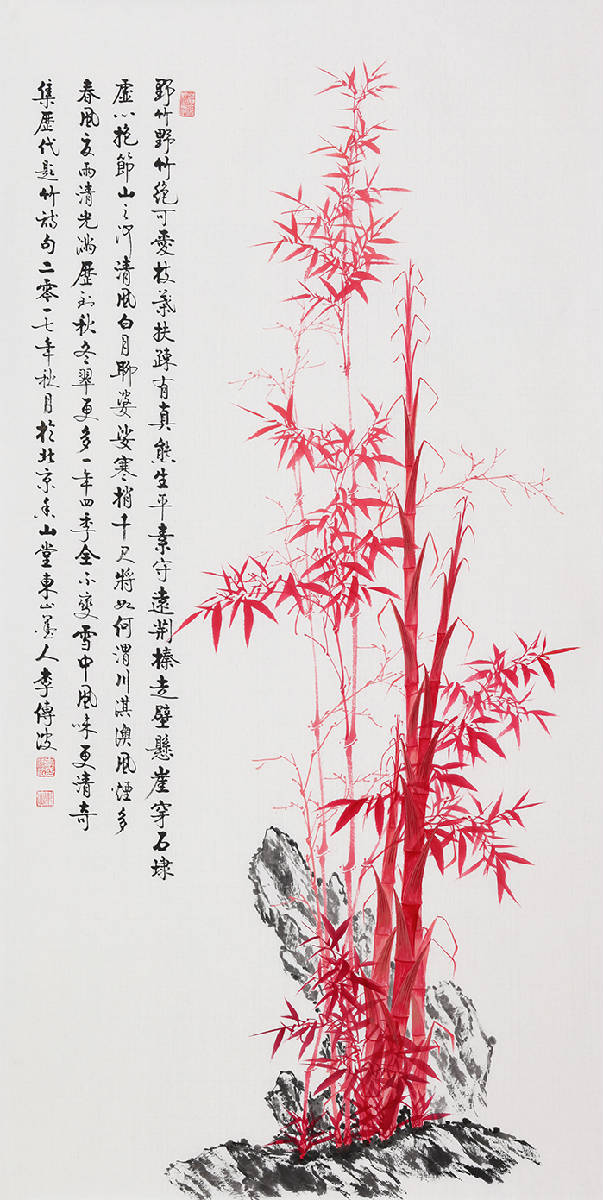 野竹野竹绝可爱枝叶扶疎有真態生平素守遠荆榛走壁懸崖穿石埭
虚心抱節山之河清風白月聊婆娑寒梢千尺將如何渭川淇澳風煙多
春風夜雨清光滿歷到秋冬翠更多一年四季全不变雪中風味更清奇
集歷代題竹詩句二零一七年秋月於北京香山堂東山墨人李傳波